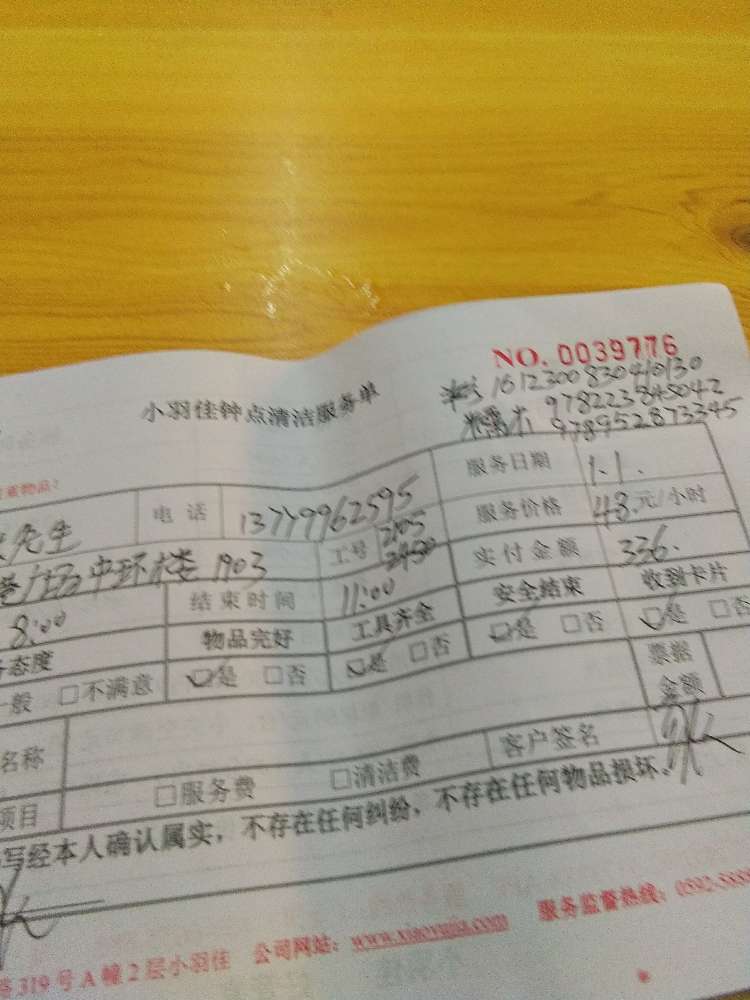 NO. 0039776
小羽佳钟点清洁服务单
161230083040130
978223845042
978952873345
先生 电话 13779962595 服务日期 1.1.
中环楼 1903 工号 2105 2450 服务价格 48元/小时
8:00 结束时间 11:00 实付金额 336.
态度 物品完好 工具齐全 安全结束 收到卡片
一般 □不满意 □是 □否 □是 □否 □是 □否 □是 □否
名称 票据金额
项目 □服务费 □清洁费 客户签名
写经本人确认属实，不存在任何纠纷，不存在任何物品损坏。
319号A幢2层小羽佳 公司网站：www.xiaoyujia.com 服务监督热线：0592-5888